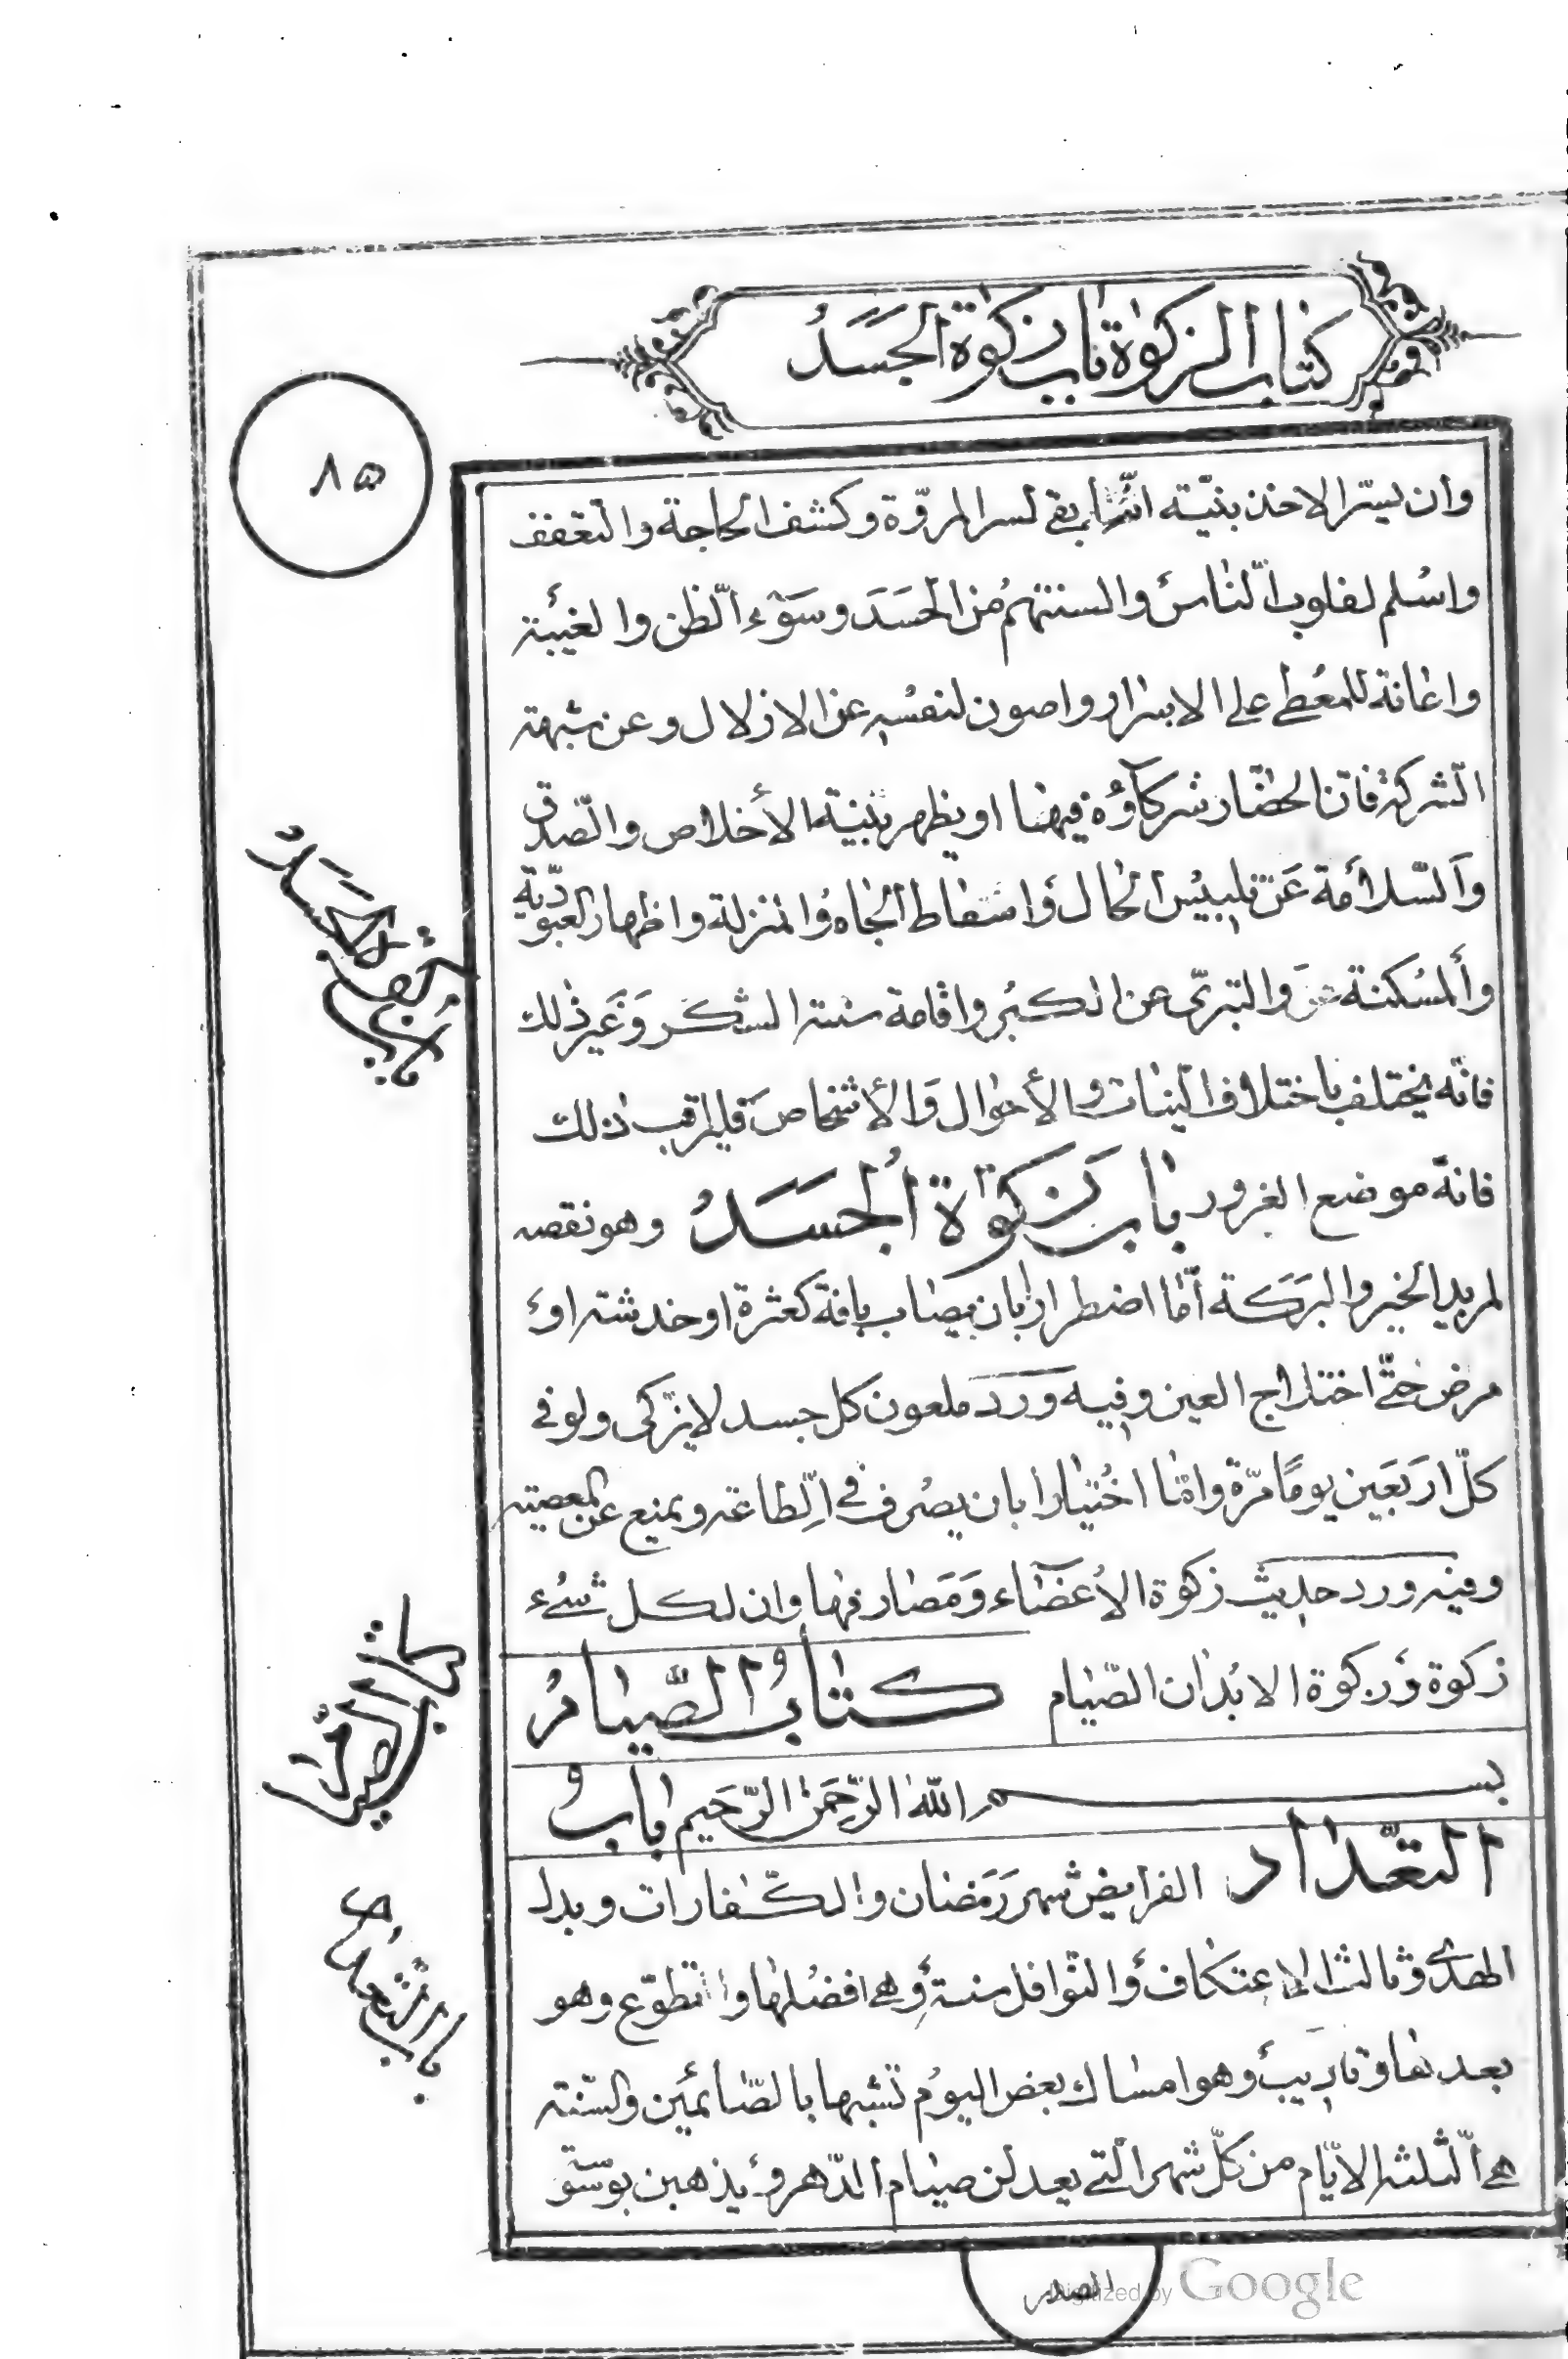 كتاب الزكوة باب زكوة الجسد
٨٥
وان يسترا الاخذ بنية انه ابقى لستر المروّة وكشف الحاجة والتعفف
واسلم لقلوب النّاس والسنتهم من الحسد وسوء الظن والغيبة
واعانة للمعطى على الاسرار واصون لنفسه عن الاذلال وعن شبهة
الشركة فانّ الحضّار شركاؤه فيها او يظهر بنية الأخلاص والصّدق
والسّلامة عن تلبيس الحال واسقاط الجاه والمنزلة واظهار العبوديّة
والمسكنة والتبرّى عن الكبر واقامة سنة الشكر وغير ذلك
فانّه يختلف باختلاف النيات والأحوال والأشخاص فليراقب ذلك
فانّه موضع الغرور باب زكوة الجسد وهو نقصه
لمريد الخير والبركة أمّا اضطرارا بان يصاب بافة كعثرة او خدشة او
مرض حتّى اختلاج العين وفيه ورد ملعون كل جسد لا يزكى ولو فى
كلّ اربعين يومًا مرّة وامّا اختيارا بان يصرف فى الطاعة ويمنع عن المعصية
وفيه ورد حديث زكوة الأعضاء ومصارفها وان لكل شىء
زكوة وزكوة الابدان الصّيام كتاب الصّيام
بسم الله الرّحمن الرّحيم باب
التعداد الفرايض شهر رمضان والكفارات وبدل
الهدى وثالث الاعتكاف والنوافل سنة وهى افضلها والتطوّع وهو
بعدها وتاديب وهو امساك بعض اليوم تشبها بالصّائمين والسّنة
هى الثلثة الايّام من كلّ شهر الّتى يعدلن صيام الدّهر ويذهبن بوسوسة
الصدر
باب زكوة الجسد
كتاب الصيام
باب التعداد
Digitized by Google